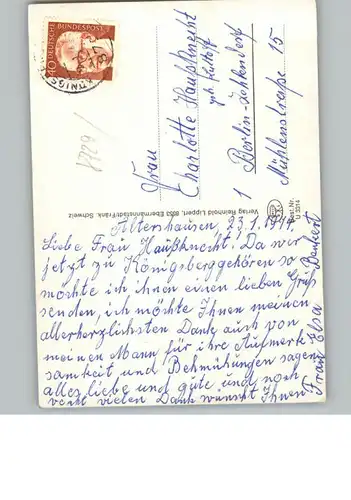 40
DEUTSCHE
BUNDESPOST
KÖNIGS
Frau
Charlotte Hauptknecht
geb.
1 Berlin-Zehlendorf
Mühlenstraße 15
Verlag Reinhold Lippert, 8553 Ebermannstadt/Fränk. Schweiz
Best.Nr.
U 3314
Altershausen, 23.1.1974.
Liebe Frau Haußknecht. Da wir
jetzt zu Königsberg gehören so
möchte ich ihnen einen lieben Gruß
senden, ich möchte Ihnen meinen
allerherzlichsten Dank auch von
meinen Mann für ihre Aufmerk
samkeit und Behmühungen sagen
alles liebe und gute und noch
recht vielen Dank wünscht Ihnen
Frau Elsa